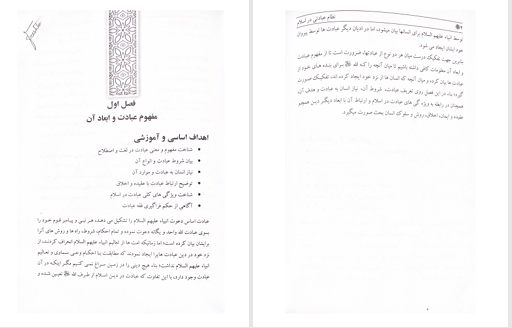 فصل اول
مفهوم عبادت و ابعاد آن
اهداف اساسی و آموزشی
شناخت مفهوم و معنی عبادت در لغت و اصطلاح
بیان شروط عبادت و انواع آن
نیاز انسان به عبادت و موارد آن
توضیح ارتباط عبادت با عقیده و اخلاق
شناخت ویژگی های کلی عبادت در اسلام
آگاهی از حکم فراگیری فقه عبادت
عبادت اساس دعوت انبیاء علیهم السلام را تشکیل می دهد، هر نبی و پیامبر قوم خود را
بسوی عبادت الله واحد و یگانه دعوت نموده و تمام احکام، شروط، راه ها و روش های آنرا
برایشان بیان کرده است؛ اما زمانیکه امت ها از تعالیم انبیاء علیهم السلام انحراف کردند، از
نزد خود در دین عبادت هایرا ایجاد نمودند که مطابقت با احکام وحی سماوی و تعالیم
انبیاء علیهم السلام نداشت؛ بناء هیچ دینی را در زمین سراغ نمی کنیم مگر اینکه در آن
عبادت وجود دارد، با این تفاوت که عبادت در دین اسلام از طرف الله ﷻ تعیین شده و
نظام عبادتی در اسلام
توسط انبیاء علیهم السلام برای انسانها بیان میشود، اما در ادیان دیگر عبادت ها توسط پیروان
خود ایشان ایجاد می شود.
بنابرین جهت تفکیک درست میان هر دو نوع از عبادتها، ضرورت است تا از مفهوم عبادت
و ابعاد آن معلومات کافی داشته باشیم تا میان آنچه را که الله ﷻ برای بنده های خود از
عبادت ها بیان کرده و میان آنچه که انسان ها از نزد خود ایجاد کرده اند، تفکیک صورت
گیرد؛ بناء در این فصل روی تعریف عبادت، شروط آن، نیاز انسان به عبادت و هدف آن
همچنان در رابطه به ویژه گی های عبادت در اسلام و ارتباط آن با ابعاد دیگر دین همچو
عقیده و ایمان، اخلاق، روش و سلوک انسان بحث صورت میگیرد.